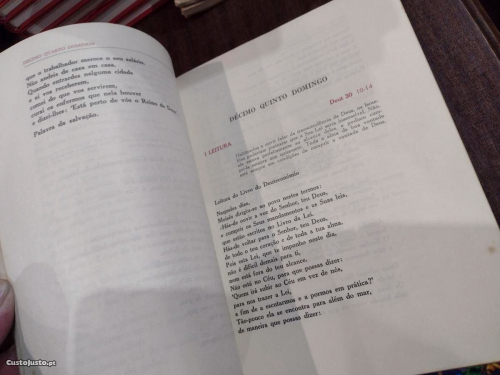 DÉCIMO QUARTO DOMINGO
que o trabalhador merece o seu salário.
Não andeis de casa em casa.
Quando entrardes nalguma cidade
e aí vos receberem,
comei do que vos servirem,
curai os enfermos que nela houver
e dizei-lhes: 'Está perto de vós o Reino de Deus'
Palavra da salvação.
DÉCIMO QUINTO DOMINGO
I LEITURA
Deut 30 10-14
Leitura do Livro do Deuteronómio
Naqueles dias,
Moisés dirigiu-se ao povo nestes termos:
«Hás-de ouvir a voz do Senhor, teu Deus,
e cumprir os Seus mandamentos e as Suas leis,
que estão escritos no Livro da Lei.
Hás-de voltar para o Senhor, teu Deus,
de todo o teu coração e de toda a tua alma.
Pois esta Lei, que te imponho neste dia,
não é difícil demais para ti,
nem está fora do teu alcance.
Não está no Céu, para que possas dizer:
'Quem irá subir ao Céu em vez de nós,
para nos trazer a Lei,
a fim de a escutarmos e a pormos em prática?'
Tão-pouco ela se encontra para além do mar,
de maneira que possas dizer:
CustoJusto.pt